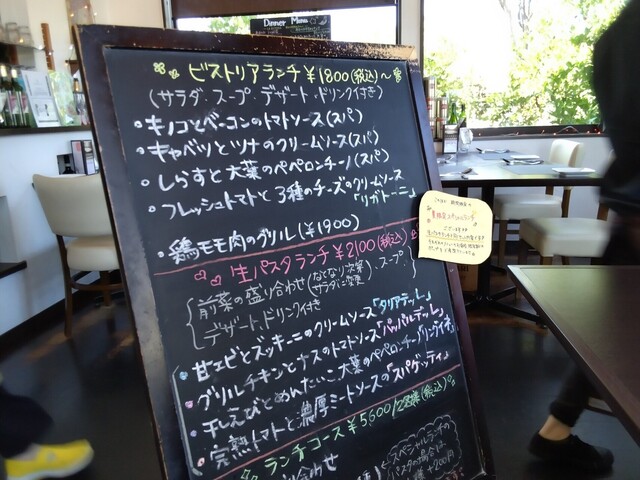 Dinner Menu
ビストリアランチ ¥1800(税込)〜
(サラダ・スープ・デザート・ドリンク付き)
・キノコとベーコンのトマトソース(スパ)
・キャベツとツナのクリームソース(スパ)
・しらすと大葉のペペロンチーノ(スパ)
・フレッシュトマトと3種のチーズのクリームソース
「リガトーニ」
・鶏モモ肉のグリル(¥1900)
生パスタランチ ¥2100(税込)
前菜の盛り合わせ(なくなり次第サラダに変更)、スープ
デザート、ドリンク付き
・甘エビとズッキーニのクリームソース「タリアテッレ」
・グリルチキンとナスのトマトソース「パッパルデッレ」
・干しえびとめんたいこ大葉のペペロンチーノ「リングイネ」
・完熟トマトと濃厚ミートソースの「スパゲッティ」
ランチコース ¥5600/2名様(税込)
り合わせ
スペシャルランチの
パスタの場合は
+200円